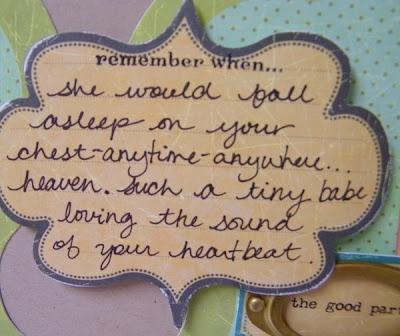 remember when...
she would fall
asleep on your
chest-anytime-anywhere...
heaven. such a tiny babe
loving the sound
of your heartbeat.
the good part